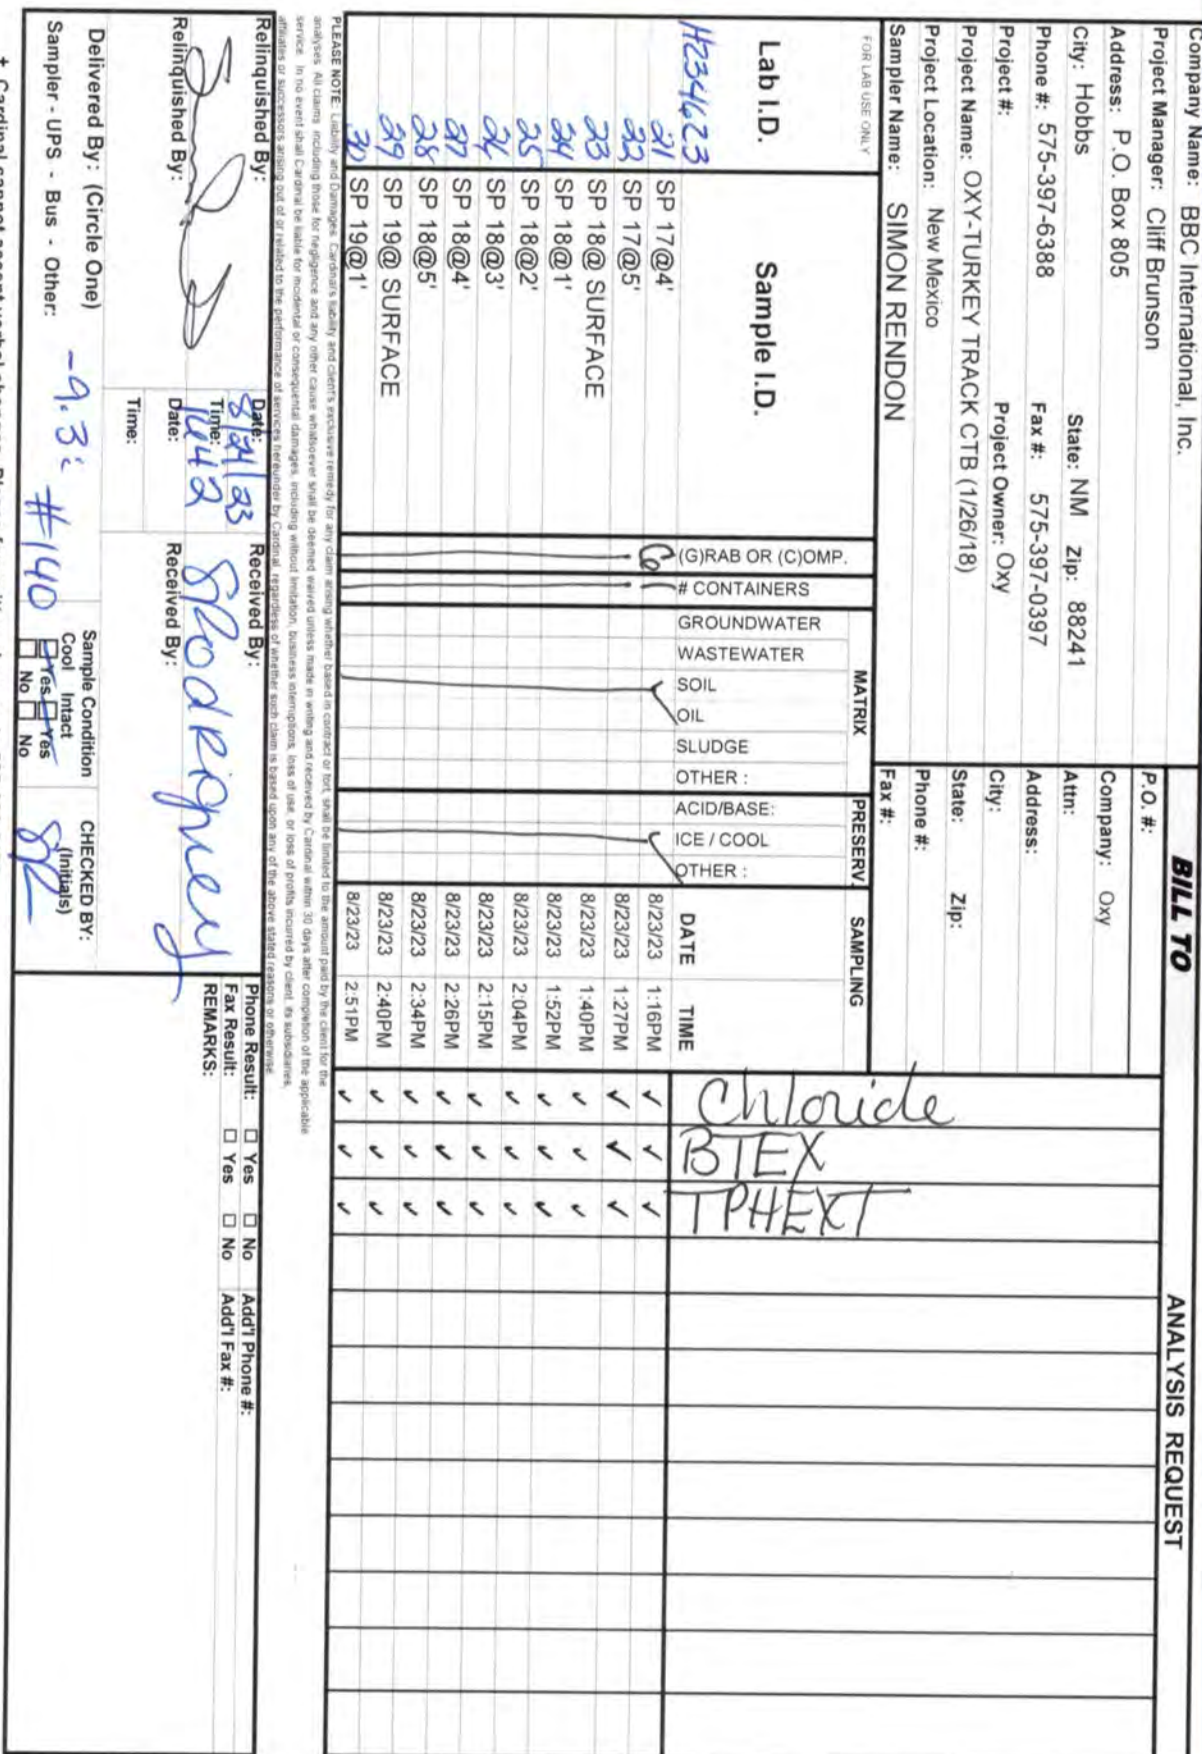 Company Name: BBC International, Inc.
Project Manager: Cliff Brunson
Address: P.O. Box 805
City: Hobbs State: NM Zip: 88241
Phone #: 575-397-6388 Fax #: 575-397-0397
Project #: Project Owner: Oxy
Project Name: OXY-TURKEY TRACK CTB (1/26/18)
Project Location: New Mexico
Sampler Name: SIMON RENDON
BILL TO
P.O. #:
Company: Oxy
Attn:
Address:
City:
State: Zip:
Phone #:
Fax #:
ANALYSIS REQUEST
FOR LAB USE ONLY
MATRIX PRESERV. SAMPLING
Lab I.D. Sample I.D. (G)RAB OR (C)OMP. # CONTAINERS GROUNDWATER WASTEWATER SOIL OIL SLUDGE OTHER : ACID/BASE: ICE / COOL OTHER : DATE TIME Chloride BTEX TPHEXT
H234623
21 SP 17@4' G 1 ✓ ✓ 8/23/23 1:16PM ✓ ✓ ✓
22 SP 17@5' 8/23/23 1:27PM ✓ ✓ ✓
23 SP 18@ SURFACE 8/23/23 1:40PM ✓ ✓ ✓
24 SP 18@1' 8/23/23 1:52PM ✓ ✓ ✓
25 SP 18@2' 8/23/23 2:04PM ✓ ✓ ✓
26 SP 18@3' 8/23/23 2:15PM ✓ ✓ ✓
27 SP 18@4' 8/23/23 2:26PM ✓ ✓ ✓
28 SP 18@5' 8/23/23 2:34PM ✓ ✓ ✓
29 SP 19@ SURFACE 8/23/23 2:40PM ✓ ✓ ✓
30 SP 19@1' 8/23/23 2:51PM ✓ ✓ ✓
PLEASE NOTE: Liability and Damages. Cardinal's liability and client's exclusive remedy for any claim arising whether based in contract or tort, shall be limited to the amount paid by the client for the
analyses. All claims including those for negligence and any other cause whatsoever shall be deemed waived unless made in writing and received by Cardinal within 30 days after completion of the applicable
service. In no event shall Cardinal be liable for incidental or consequental damages, including without limitation, business interruptions, loss of use, or loss of profits incurred by client, its subsidiaries,
affiliates or successors arising out of or related to the performance of services hereunder by Cardinal, regardless of whether such claim is based upon any of the above stated reasons or otherwise.
Relinquished By: Date: 8/24/23 Received By:
Time: 1642 SRodriguez
Relinquished By: Date: Received By:
Time:
Phone Result: □ Yes □ No Add'l Phone #:
Fax Result: □ Yes □ No Add'l Fax #:
REMARKS:
Delivered By: (Circle One) Sample Condition CHECKED BY:
-9.3c Cool Intact (Initials)
Sampler - UPS - Bus - Other: #140 Yes Yes SR
No No